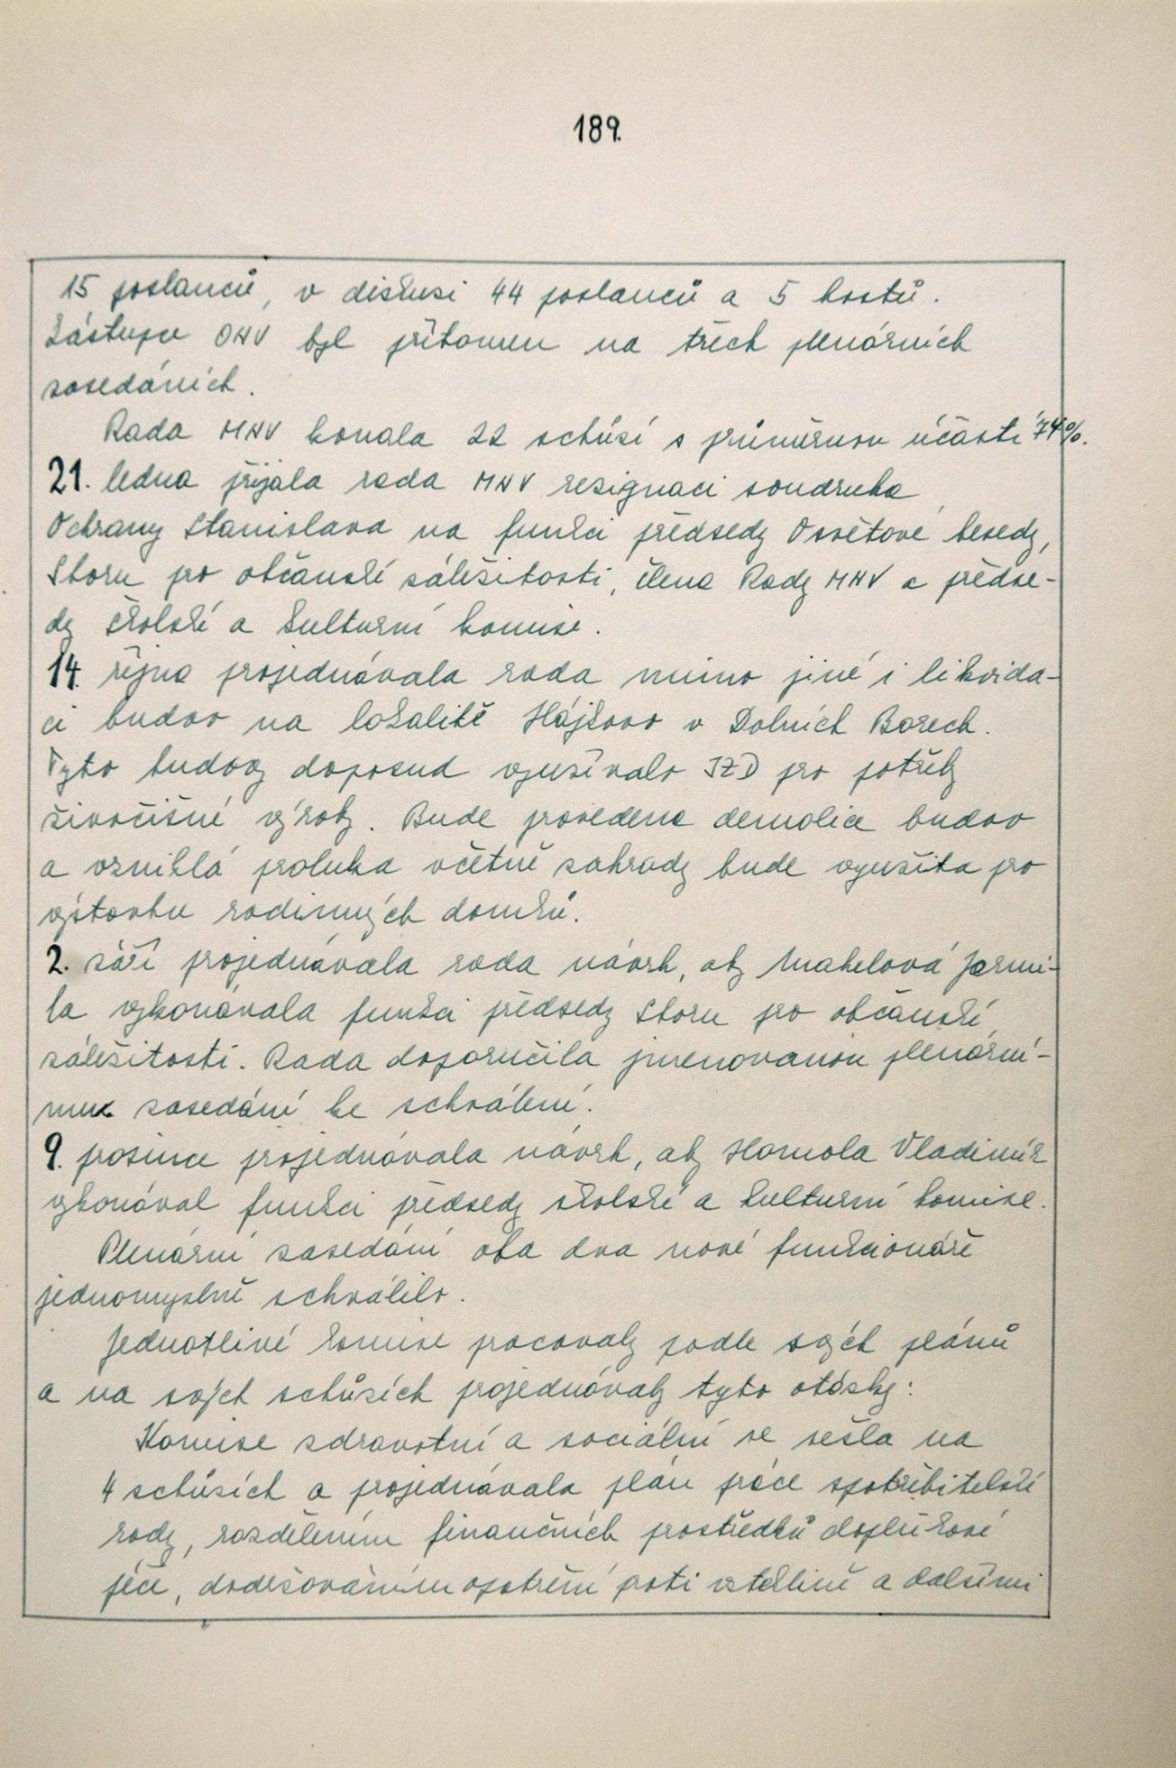 189.
15 poslanců, v diskusi 44 poslanců a 5 hostů.
Zástupce ONV byl přítomen na třech plenárních
zasedáních.
Rada MNV konala 22 schůzí s průměrnou účastí 74%.
21. ledna přijala rada MNV rezignaci soudruha
Ochrany Stanislava na funkci předsedy Osvětové besedy,
Sboru pro občanské záležitosti, člena Rady MNV a předse-
dy školské a kulturní komise.
14. října projednávala rada mimo jiné i likvida-
ci budov na lokalitě Hájkovo v Dolních Borech.
Tyto budovy doposud využívalo JZD pro potřeby
živočišné výroby. Bude provedena demolice budov
a vzniklá proluka včetně zahrady bude využita pro
výstavbu rodinných domků.
2. září projednávala rada návrh, aby Machelová Jarmi-
la vykonávala funkci předsedy Sboru pro občanské
záležitosti. Rada doporučila jmenovanou plenární-
mu zasedání ke schválení.
9. prosince projednávala návrh, aby Homola Vladimír
vykonával funkci předsedy školské a kulturní komise.
Plenární zasedání oba dva nové funkcionáře
jednomyslně schválilo.
Jednotlivé komise pracovaly podle svých plánů
a na svých schůzích projednávaly tyto otázky:
Komise zdravotní a sociální se sešla na
4 schůzích a projednávala plán práce spotřebitelské
rady, rozdělením finančních prostředků doplňkové
péče, dodržováním opatření proti vzteklině a dalšími